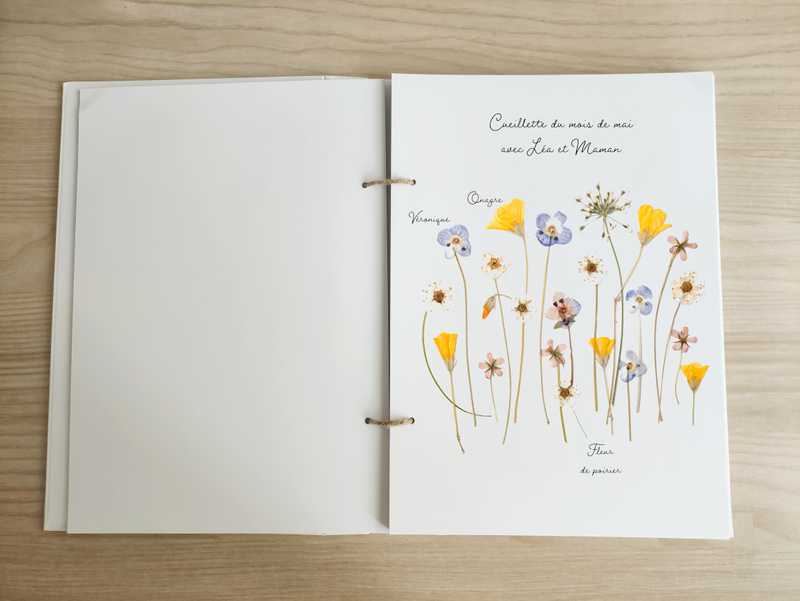 Cueillette du mois de mai
avec Léa et Maman
Onagre
Véronique
Fleur
de poirier